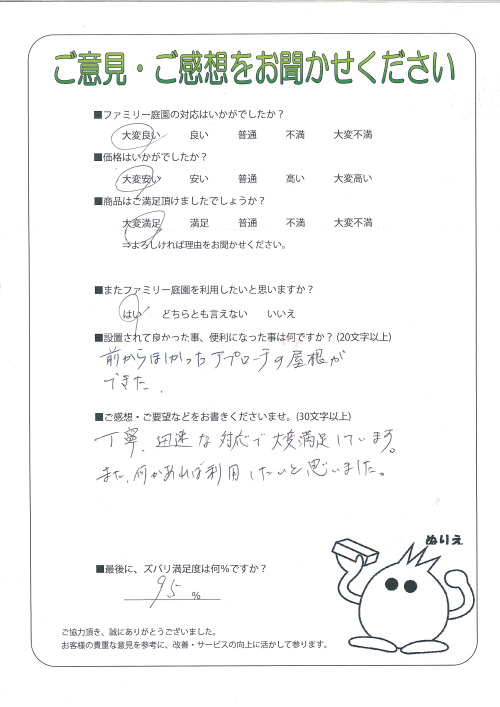 ご意見・ご感想をお聞かせください
■ファミリー庭園の対応はいかがでしたか？
大変良い 良い 普通 不満 大変不満
■価格はいかがでしたか？
大変安い 安い 普通 高い 大変高い
■商品はご満足頂けましたでしょうか？
大変満足 満足 普通 不満 大変不満
⇒よろしければ理由をお聞かせください。
■またファミリー庭園を利用したいと思いますか？
はい どちらとも言えない いいえ
■設置されて良かった事、便利になった事は何ですか？(20文字以上)
前からほしかったアプローチの屋根が
できた.
■ご感想・ご要望などをお書きくださいませ。(30文字以上)
丁寧、迅速な対応で大変満足しています。
また、何かあれば利用したいと思いました。
ぬりえ
■最後に、ズバリ満足度は何%ですか？
95 %
ご協力頂き、誠にありがとうございました。
お客様の貴重な意見を参考に、改善・サービスの向上に活かして参ります。